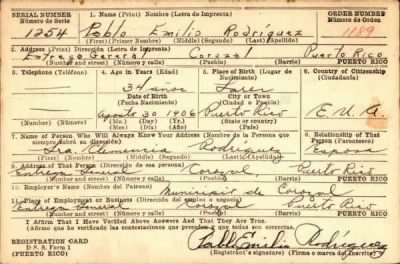 SERIAL NUMBER 1. Name (Print) (Letra de Imprenta) ORDER NUMBER
Número de Serie Número de Orden
1254 Pablo Emilio Rodríguez 1189
(First) (Primer Nombre) (Middle) (Segundo) (Last) (Apellidos)
2. Address (Print) Dirección (Letra de Imprenta)
Entrega General Corozal Puerto Rico
(Number and street) (Número y calle) PUERTO RICO
3. Telephone (Teléfono) 4. Age in Years (Edad) 5. Place of Birth (Lugar de Nacimiento) 6. Country of Citizenship (Ciudadanía)
34 años Lares
Date of Birth City or Town
(Fecha Nacimiento) (Ciudad o Pueblo)
Agosto 30 1906 Puerto Rico E. U. A.
(State or Country)
7. Name of Person Who Will Always Know Your Address (Nombre de la Persona que siempre sabrá su dirección) 8. Relationship of That Person (Parentesco)
Sra. Rodríguez Esposa
(First) (Middle) (Segundo) (Last) (Apellido)
9. Address of That Person (Dirección de esa persona)
Entrega General Corozal Puerto Rico
(Number and street) (Número y calle) PUERTO RICO
10. Employer's Name (Nombre del Patrono)
Municipio de Corozal
11. Place of Employment or Business (Dirección del empleo o negocio)
Entrega General Corozal Puerto Rico
(Number and street) (Número y calle) PUERTO RICO
I Affirm That I Have Verified Above Answers And That They Are True.
(Afirmo que he verificado las contestaciones que preceden y que todas son correctas.)
REGISTRATION CARD Pablo Emilio Rodríguez
D. S. S. Form 1 (Registrant's signature) (Firma o marca del Inscrito)
(PUERTO RICO)